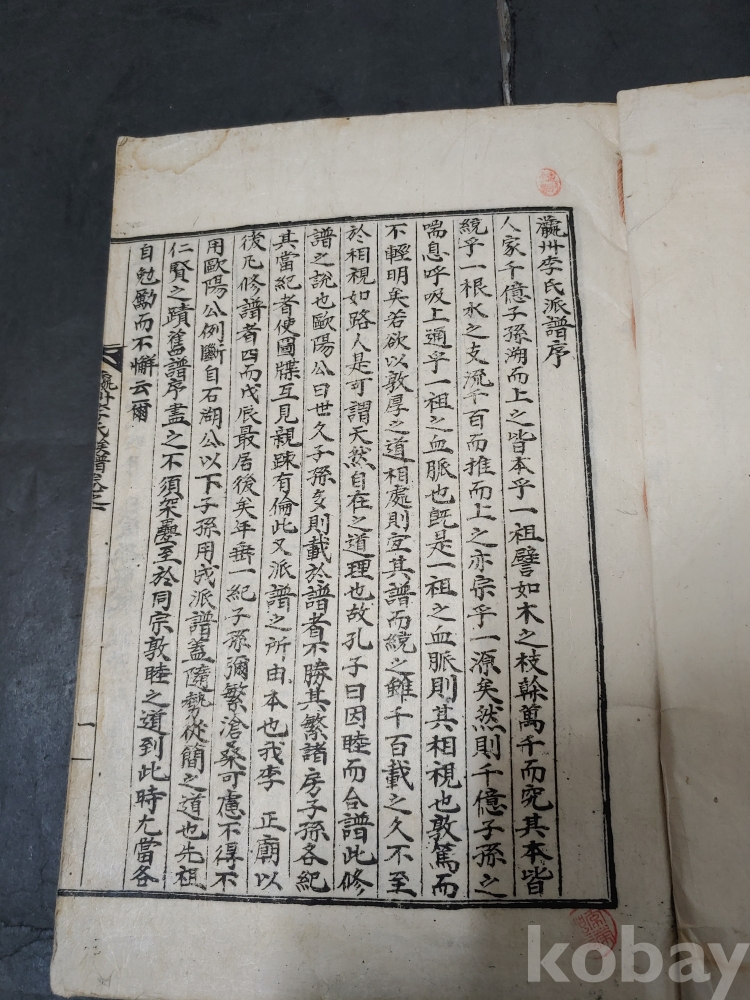 瀛州李氏派譜序
人家千億子孫溯而上之皆本乎一祖譬如木之枝幹萬千而究其本皆
統乎一根水之支流千百而推而上之亦宗乎一源矣然則千億子孫之
喘息呼吸上通乎一祖之血脈也旣是一祖之血脈則其相視也敦篤而
不輕明矣若欲以敦厚之道相處則宜其譜而統之雖千百載之久不至
於相視如路人是可謂天然自在之道理也故孔子曰因睦而合譜此修
譜之說也歐陽公曰世久子孫多則載於譜者不勝其繁諸房子孫各紀
其當紀者使圖牒互見親踈有倫此又派譜之所由本也我李 正廟以
後凡修譜者四而戊辰最居後矣年垂一紀子孫彌繁滄桑可慮不得不
用歐陽公例斷自石湖公以下子孫用成派譜盖隨勢從簡之道也先祖
仁賢之蹟舊譜序盡之不須架疊至於同宗敦睦之道到此時尤當各
自勉勵而不懈云爾
瀛州李氏族譜卷之一
一
kobay